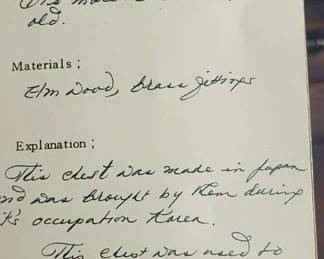 old.
Materials ;
Elm wood, brass fittings
Explanation ;
This chest was made in Japan
and was brought by them during
it's occupation Korea.
This chest was used to